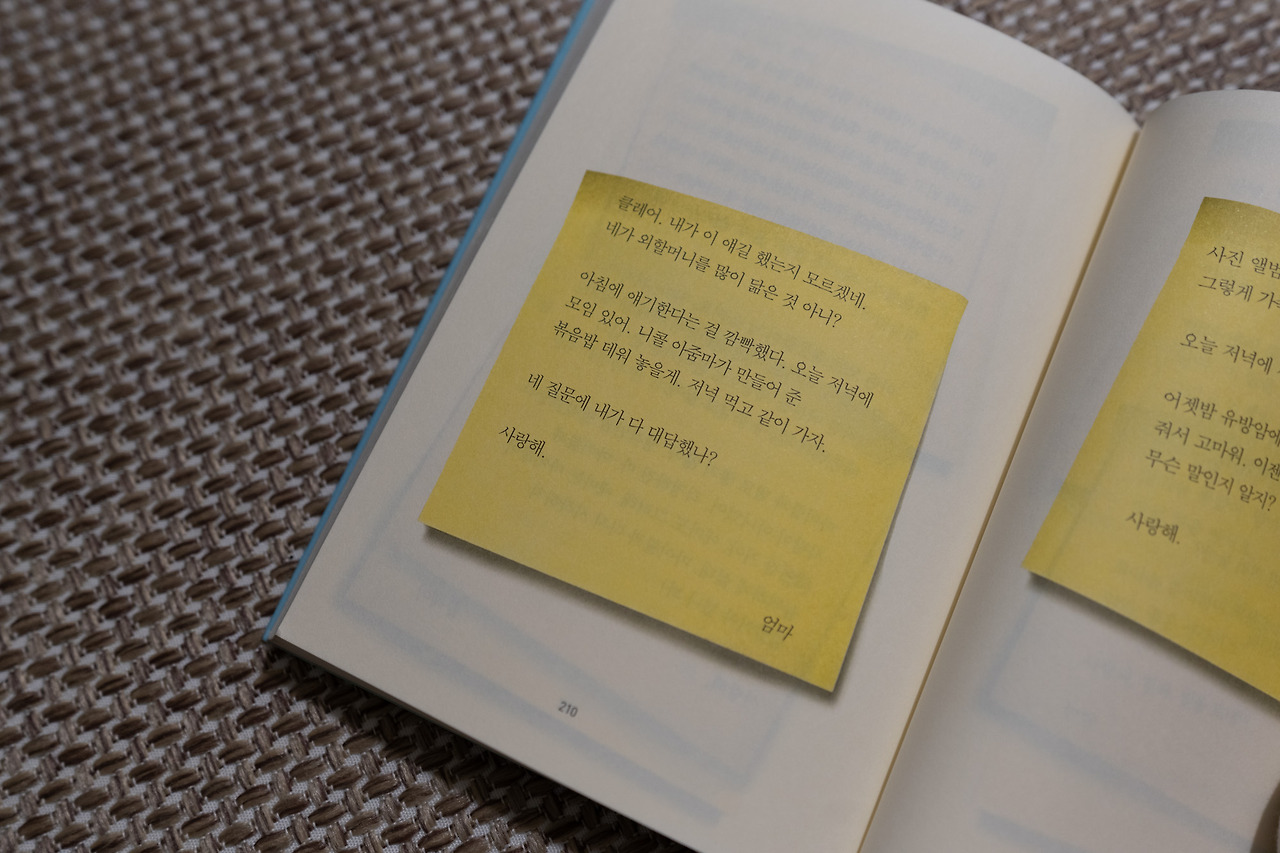 클레어. 내가 이 얘길 했는지 모르겠네.
네가 외할머니를 많이 닮은 것 아니?
아침에 얘기한다는 걸 깜빡했다. 오늘 저녁에
모임 있어. 니콜 아줌마가 만들어 준
볶음밥 데워 놓을게. 저녁 먹고 같이 가자.
네 질문에 내가 다 대답했나?
사랑해.
엄마
210
사진 앨범
그렇게 가
오늘 저녁에
어젯밤 유방암에
줘서 고마워. 이젠
무슨 말인지 알지?
사랑해.